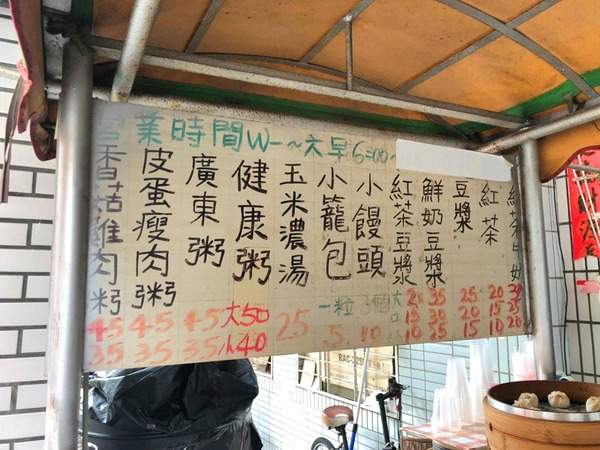 營業時間W一~六早6:00~
香菇雞肉粥 45 35
皮蛋瘦肉粥 45 35
廣東粥 45 35
健康粥 大50 小40
玉米濃湯 25
小籠包 一粒 5
小饅頭 3個 10
紅茶豆漿 大 中 小 10
鮮奶豆漿 35 30 25
豆漿 25 20 15
紅茶 20 15 10
20
RAC-225